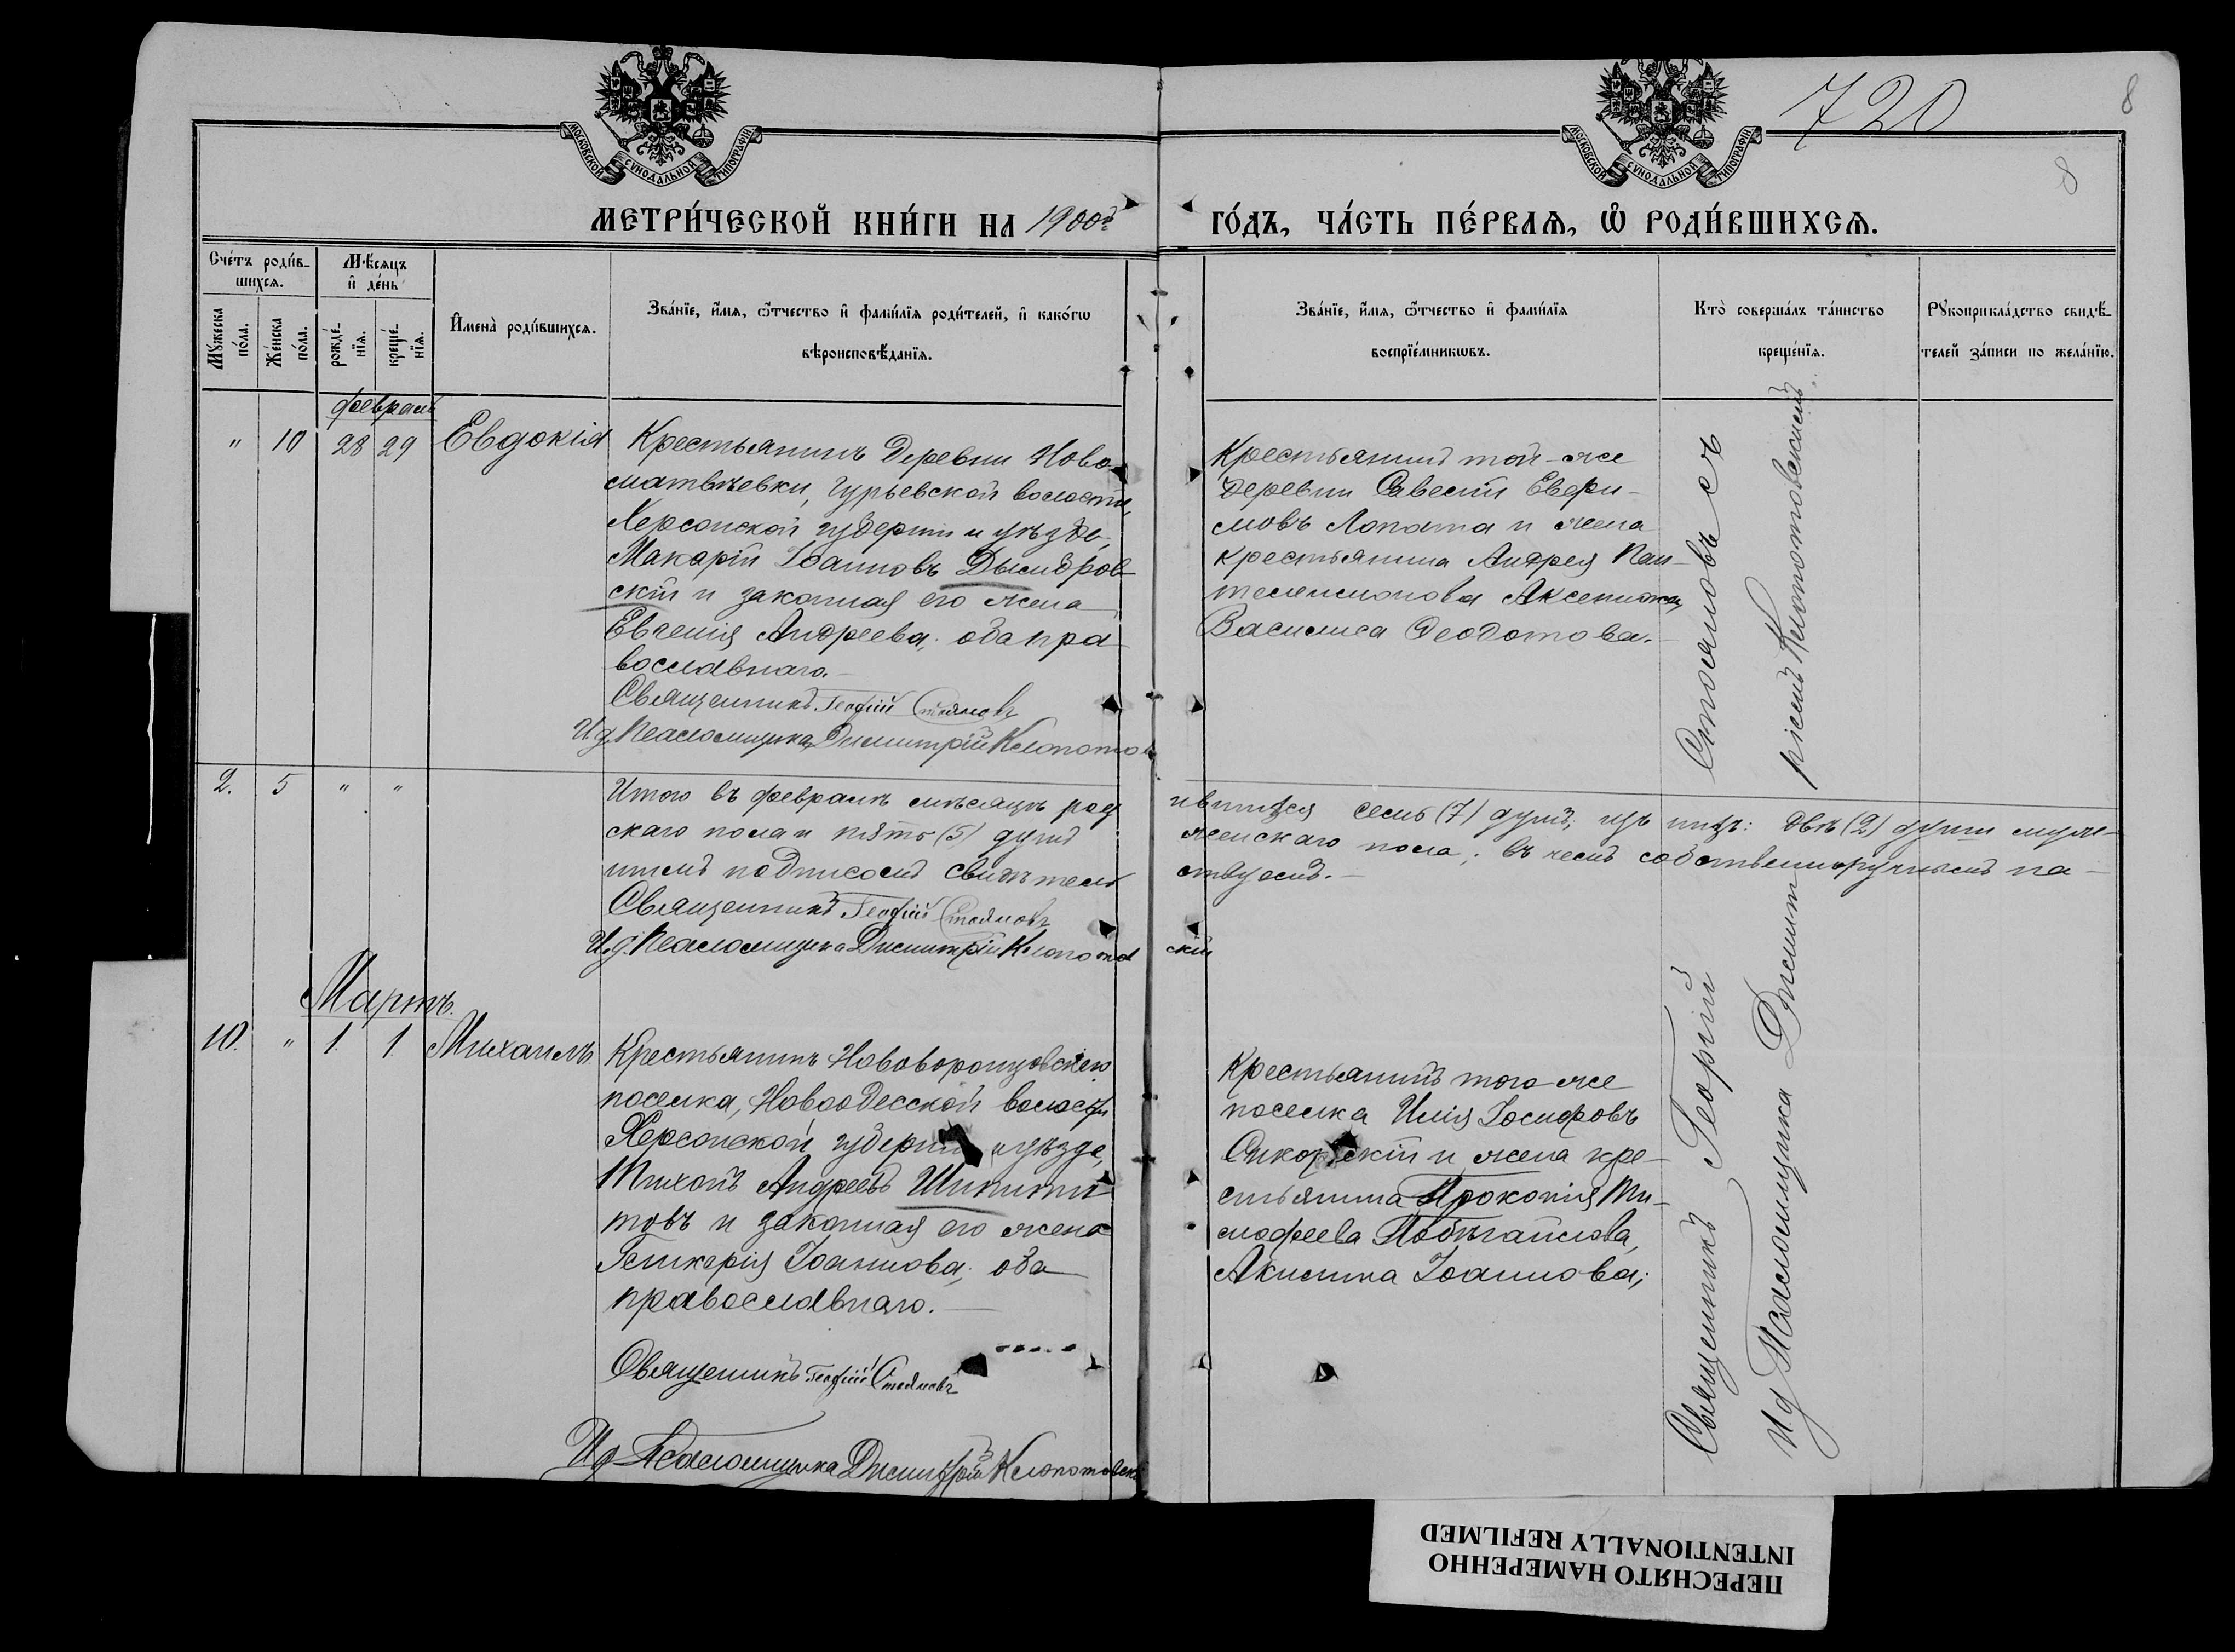 720
8
8
МОСКОВСКОЙ СУНОДАЛЬНОЙ ТИПОГРАФІИ
МОСКОВСКОЙ СУНОДАЛЬНОЙ ТИПОГРАФІИ
МЕТРИ́ЧЕСКОЙ КНИ́ГИ НА 1900й
ГО́ДЪ, ЧА́СТЬ ПЕ́РВАѦ, Ѿ РОДИ́ВШИХСѦ.
Сче́тъ роди́в-
шихсѧ.
Мꙋ́жеска по́ла.
Же́нска по́ла.
Мѣ́сѧцъ
и҆ де́нь
рожде́-
нїѧ.
креще́-
нїѧ.
И҆мена̀ роди́вшихсѧ.
Зва́нїе, и҆́мѧ, ѻ҆́тчество и҆ фами́лїѧ роди́телей, и҆ како́гѡ
вѣроисповѣ́данїѧ.
Зва́нїе, и҆́мѧ, ѻ҆́тчество и҆ фами́лїѧ
воспрїе́мникѡвъ.
Кто̀ соверша́лъ та́инство
креще́нїѧ.
Рꙋкоприкла́дство свидѣ́-
телей за́писи по жела́нїю.
февраль
" 10 28 29 Евдокія
Крестьянинъ деревни Ново-
матвѣевки, Гурьевской волости,
Херсонской губерніи и уѣзда,
Макарій Іоанновъ Дымбров-
скій и законная его жена
Евгенія Андреева; оба пра
вославнаго.
Священникъ Георгій Стояновъ
И.д. Псаломщика Димитрій Клопотов
Крестьянинъ той-же
деревни
мовъ Лопата и жена
крестьянина Андрея Пан-
телеимонова
Василиса Феодотова.
2. 5 " "
Итого въ февралѣ мѣсяцѣ род
ившихся семь (7) душъ; изъ нихъ: двѣ (2) души муж-
скаго пола и пять (5) душъ
женскаго пола; въ чемъ собственноручнымъ на-
шимъ подписомъ свидѣтель
ствуемъ.
Священникъ Георгій Стояновъ
И.д. Псаломщика Димитрій Клопотов
скій
Мартъ.
10. " 1. 1. Михаилъ
Крестьянинъ Нововоронцовскаго
поселка, Новоодесской волости
Херсонской губерніи и уѣзда,
Тихонъ Андреевъ
товъ и законная его жена
Гликерія Іоаннова; оба
православнаго.
Священникъ Георгій Стояновъ
И.д. Псаломщика Димитрій Клопотовскій
Крестьянинъ того-же
поселка Илія Іосифовъ
Сикорскій и жена кре-
стьянина Прокопія Ти-
мофеева
Акилина Іоаннова;
Священникъ Георгій Стояновъ съ
И.д. Псаломщика Димитріемъ Клопотовскимъ
ПЕРЕСНЯТО НАМЕРЕННО
INTENTIONALLY REFILMED